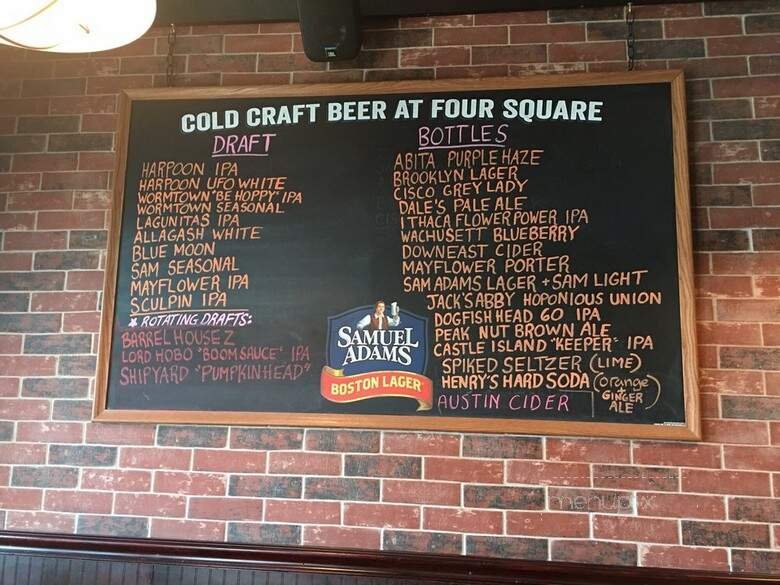 COLD CRAFT BEER AT FOUR SQUARE
DRAFT
HARPOON IPA
HARPOON UFO WHITE
WORMTOWN "BE HOPPY" IPA
WORMTOWN SEASONAL
LAGUNITAS IPA
ALLAGASH WHITE
BLUE MOON
SAM SEASONAL
MAYFLOWER IPA
SCULPIN IPA
* ROTATING DRAFTS:
BARREL HOUSE Z
LORD HOBO "BOOMSAUCE" IPA
SHIPYARD "PUMPKINHEAD"
BOTTLES
ABITA PURPLE HAZE
BROOKLYN LAGER
CISCO GREY LADY
DALE'S PALE ALE
ITHACA FLOWER POWER IPA
WACHUSETT BLUEBERRY
DOWNEAST CIDER
MAYFLOWER PORTER
SAM ADAMS LAGER + SAM LIGHT
JACK'S ABBY HOPONIOUS UNION
DOGFISH HEAD 60 IPA
PEAK NUT BROWN ALE
CASTLE ISLAND "KEEPER" IPA
SPIKED SELTZER (LIME)
HENRY'S HARD SODA (orange + GINGER ALE)
AUSTIN CIDER
SAMUEL ADAMS
BOSTON LAGER
JBL
menupix